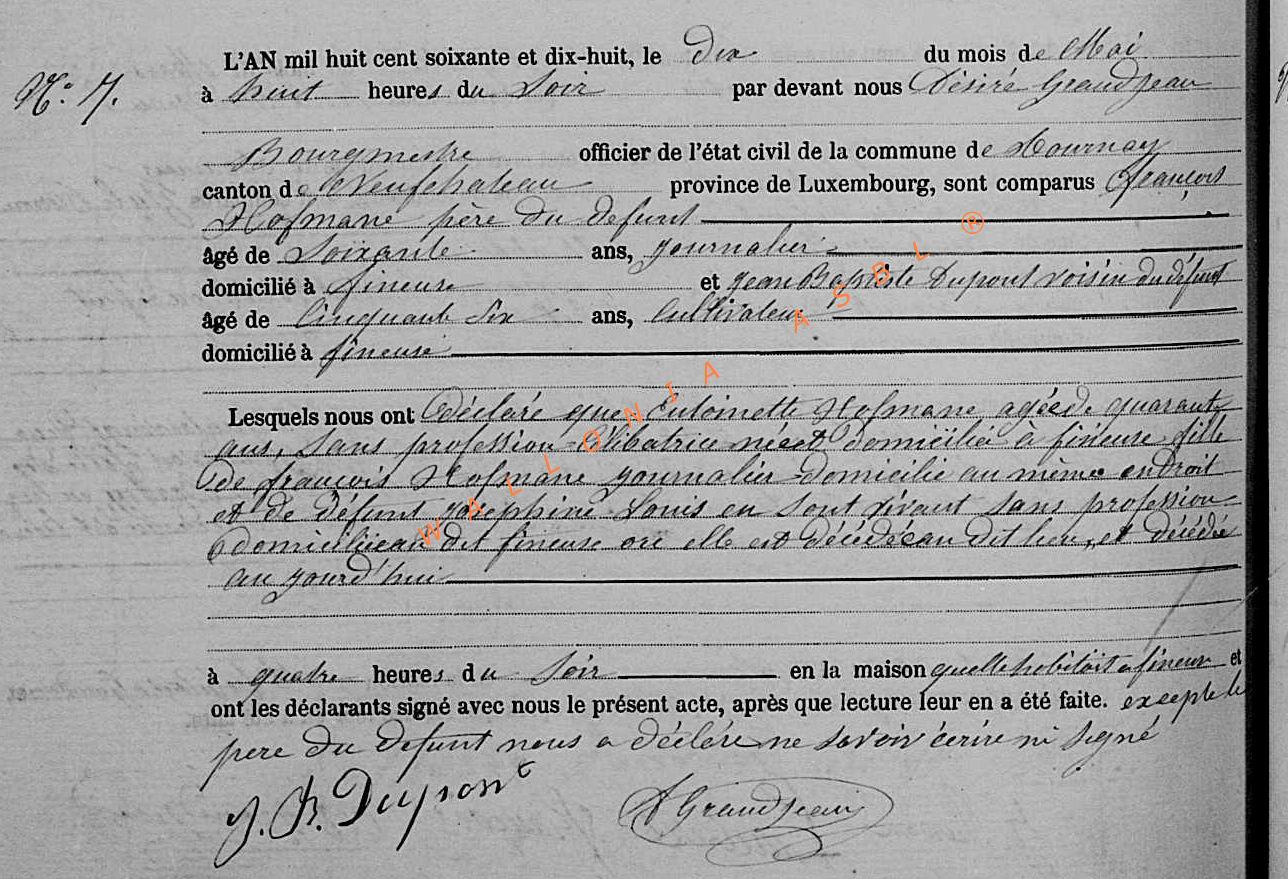 L'AN mil huit cent soixante et dix-huit, le dix du mois de Mai
N.° 7.
à huit heures du Soir par devant nous Désiré Grandjean
Bourgmestre officier de l'état civil de la commune de Tournay
canton de Neufchateau province de Luxembourg, sont comparus François
Hofmane père du defunt
âgé de Soixante ans, journalier
domicilié à fineuse et Jean Baptiste Dupont voisin du défunt
âgé de Cinquant Six ans, Cultivateur
domicilié à fineuse
Lesquels nous ont Déclaré que Entoinette Hofmane agée de quarant
ans, Sans profession Célibatrice née et domiciliée à fineuse fille
de françois Hofmane journalier domicilié au même endroit
et de défunt Josephine Louis en Sont vivant sans profession
domiciliée au dit fineuse ou elle est décédée au dit lieu, et décédée
au jourd'hui
à quatre heures du Soir en la maison quelle hebitait a fineuse et
ont les déclarants signé avec nous le présent acte, après que lecture leur en a été faite. excepte le
pere du defunt nous a déclére ne savoir écrire ni Signé
J. B. Dupont
D Grandjean
WALLONIA ASBL ®